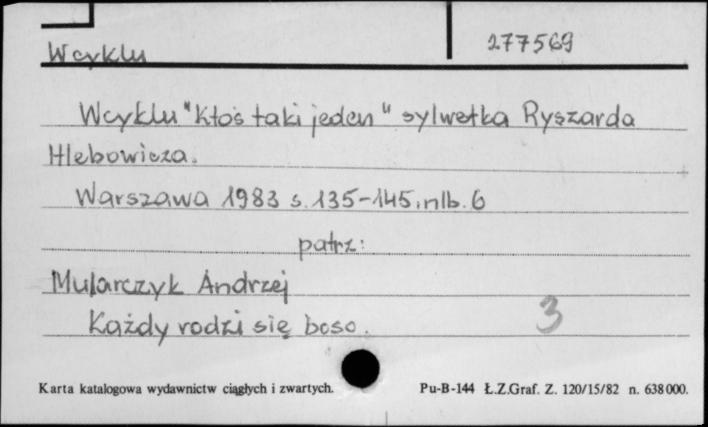 W cyklu
277569
W cyklu "Ktoś taki jeden" sylwetka Ryszarda
Hlebowicza.
Warszawa 1983 s. 135-145, nlb. 6
patrz:
Mularczyk Andrzej
Każdy rodzi się boso.
3
Karta katalogowa wydawnictw ciągłych i zwartych.
Pu-B-144 Ł.Z.Graf. Z. 120/15/82 n. 638000.